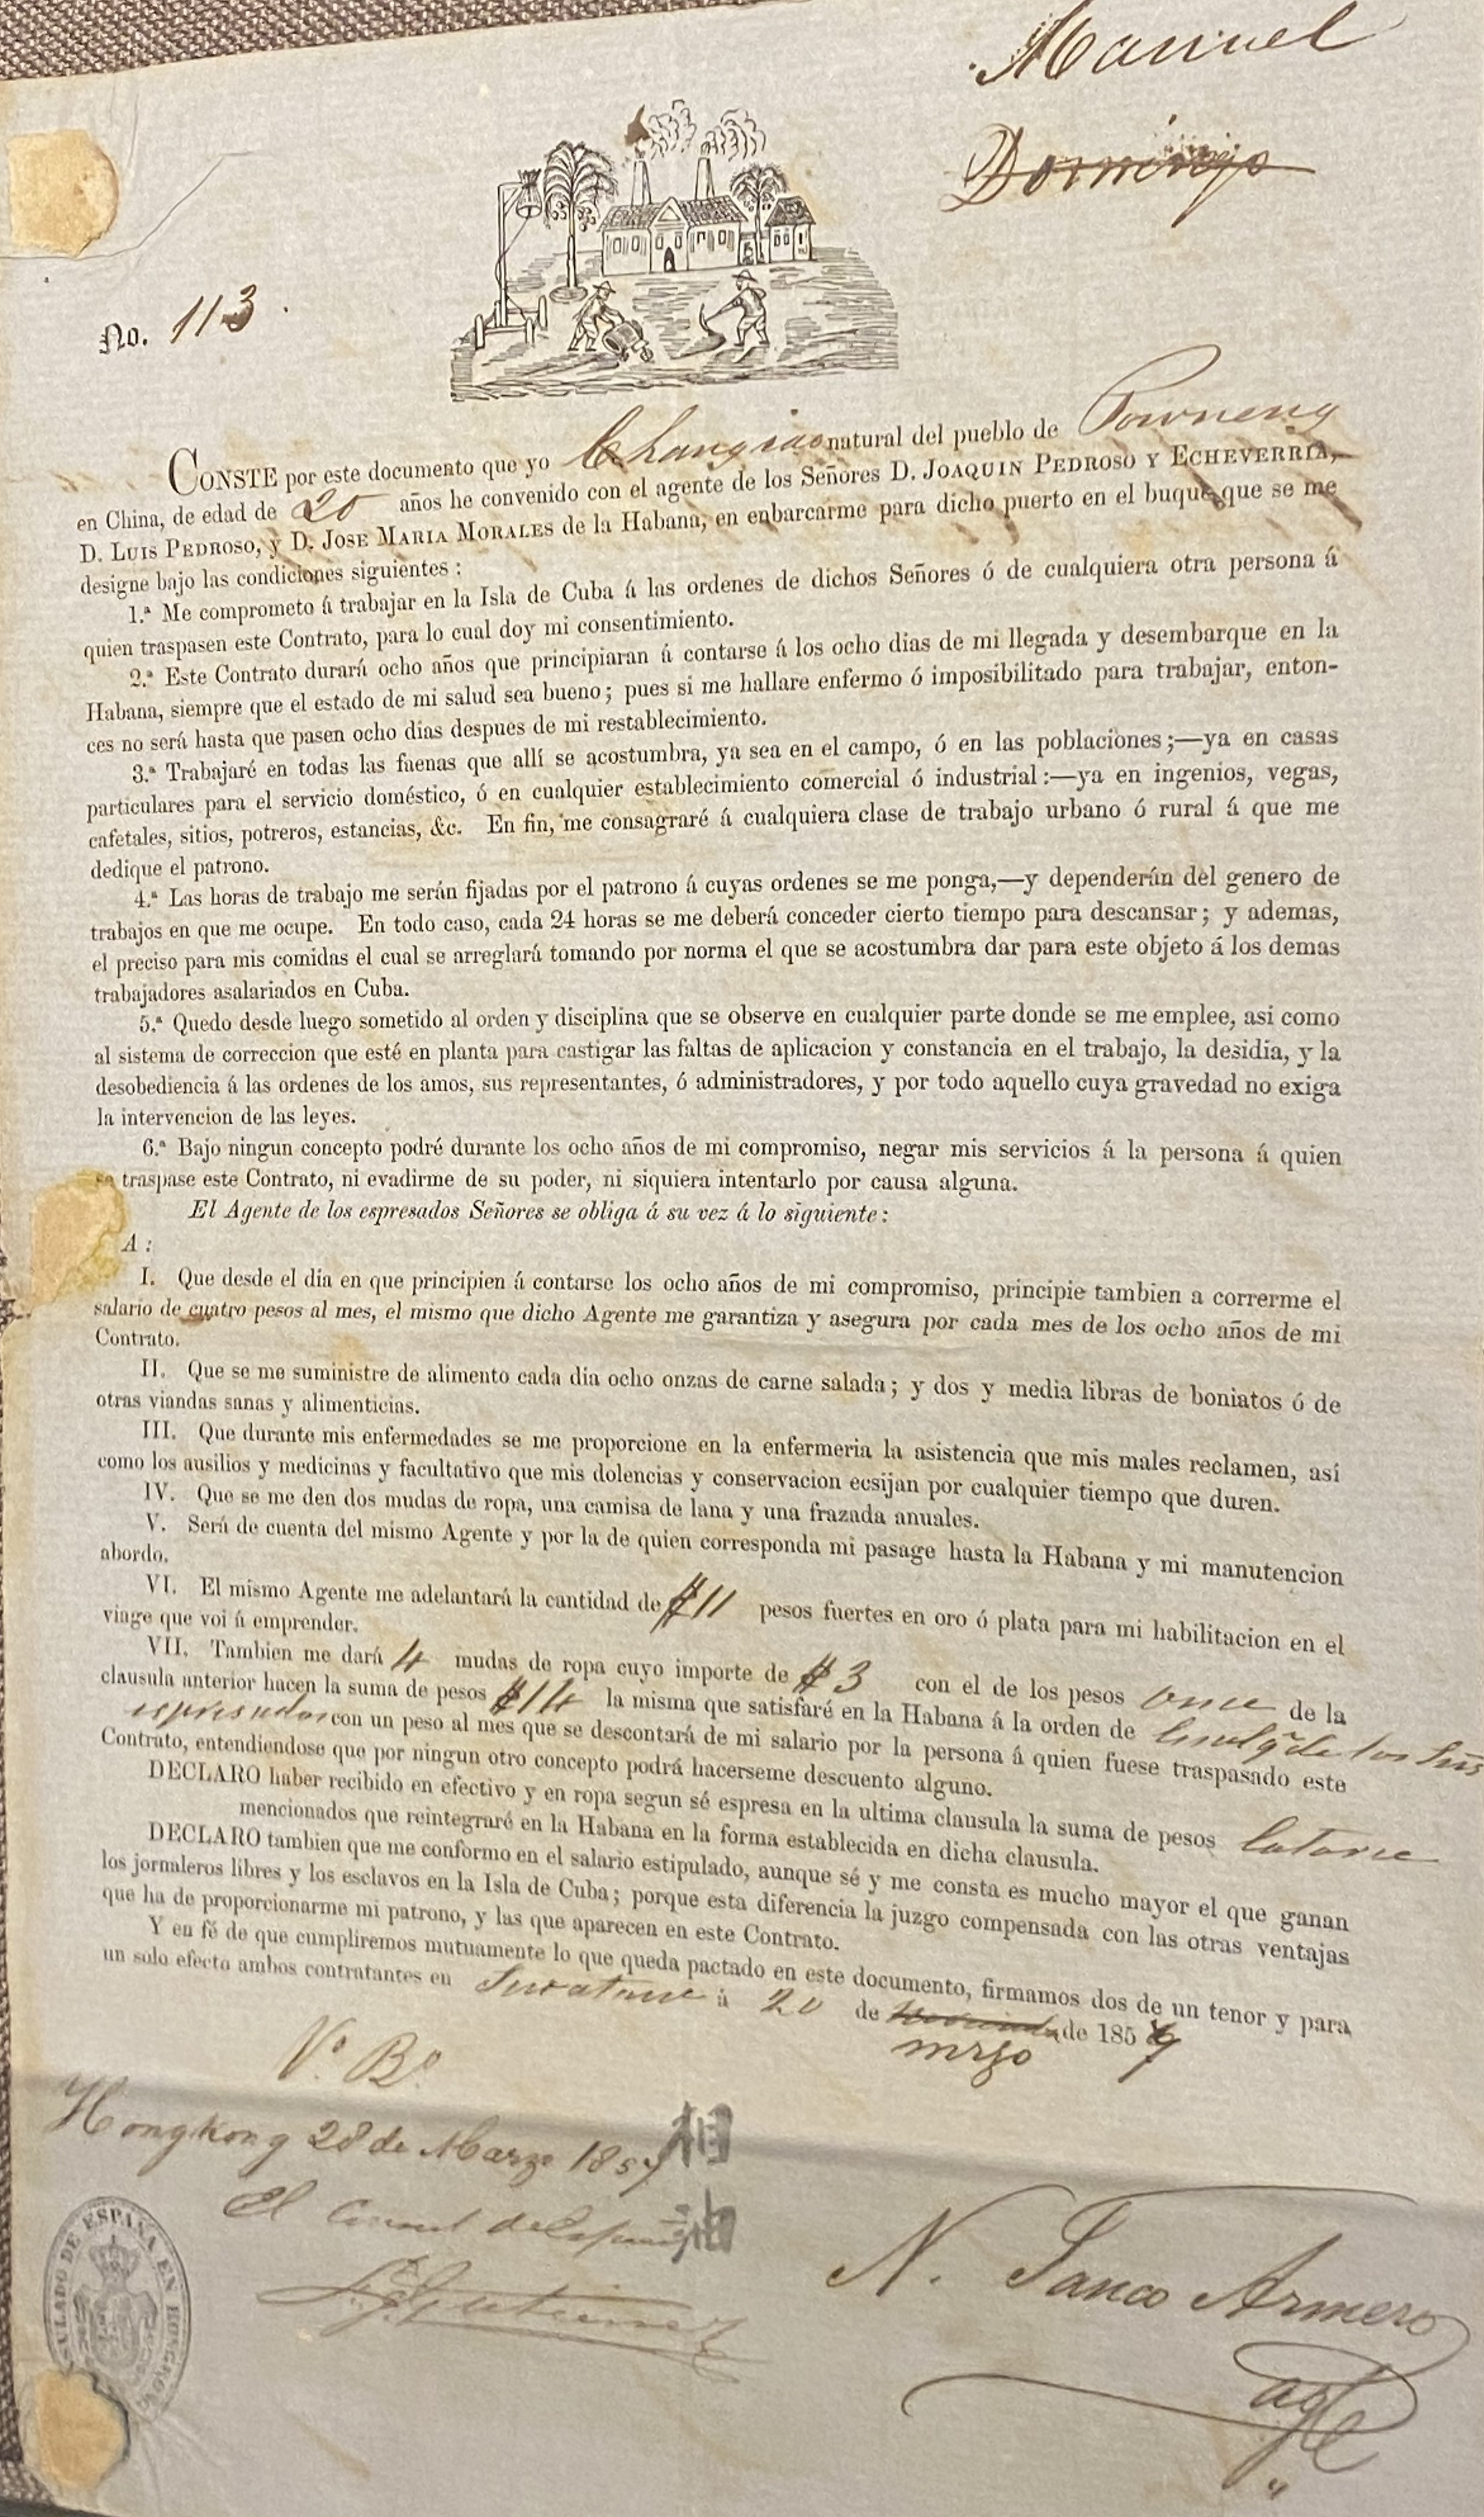 Manuel
Domingo
No. 113.
CONSTE por este documento que yo Changsiao natural del pueblo de Powneng
en China, de edad de 20 años he convenido con el agente de los Señores D. JOAQUIN PEDROSO Y ECHEVERRIA,
D. LUIS PEDROSO, y D. JOSE MARIA MORALES de la Habana, en enbarcarme para dicho puerto en el buque que se me
designe bajo las condiciones siguientes :
1.ª Me comprometo á trabajar en la Isla de Cuba á las ordenes de dichos Señores ó de cualquiera otra persona á
quien traspasen este Contrato, para lo cual doy mi consentimiento.
2.ª Este Contrato durará ocho años que principiaran á contarse á los ocho dias de mi llegada y desembarque en la
Habana, siempre que el estado de mi salud sea bueno; pues si me hallare enfermo ó imposibilitado para trabajar, enton-
ces no será hasta que pasen ocho dias despues de mi restablecimiento.
3.ª Trabajaré en todas las faenas que allí se acostumbra, ya sea en el campo, ó en las poblaciones;—ya en casas
particulares para el servicio doméstico, ó en cualquier establecimiento comercial ó industrial:—ya en ingenios, vegas,
cafetales, sitios, potreros, estancias, &c. En fin, me consagraré á cualquiera clase de trabajo urbano ó rural á que me
dedique el patrono.
4.ª Las horas de trabajo me serán fijadas por el patrono á cuyas ordenes se me ponga,—y dependerán del genero de
trabajos en que me ocupe. En todo caso, cada 24 horas se me deberá conceder cierto tiempo para descansar; y ademas,
el preciso para mis comidas el cual se arreglará tomando por norma el que se acostumbra dar para este objeto á los demas
trabajadores asalariados en Cuba.
5.ª Quedo desde luego sometido al orden y disciplina que se observe en cualquier parte donde se me emplee, asi como
al sistema de correccion que esté en planta para castigar las faltas de aplicacion y constancia en el trabajo, la desidia, y la
desobediencia á las ordenes de los amos, sus representantes, ó administradores, y por todo aquello cuya gravedad no exiga
la intervencion de las leyes.
6.ª Bajo ningun concepto podré durante los ocho años de mi compromiso, negar mis servicios á la persona á quien
se traspase este Contrato, ni evadirme de su poder, ni siquiera intentarlo por causa alguna.
El Agente de los espresados Señores se obliga á su vez á lo siguiente :
A :
I. Que desde el dia en que principien á contarse los ocho años de mi compromiso, principie tambien a correrme el
salario de cuatro pesos al mes, el mismo que dicho Agente me garantiza y asegura por cada mes de los ocho años de mi
Contrato.
II. Que se me suministre de alimento cada dia ocho onzas de carne salada; y dos y media libras de boniatos ó de
otras viandas sanas y alimenticias.
III. Que durante mis enfermedades se me proporcione en la enfermeria la asistencia que mis males reclamen, así
como los ausilios y medicinas y facultativo que mis dolencias y conservacion ecsijan por cualquier tiempo que duren.
IV. Que se me den dos mudas de ropa, una camisa de lana y una frazada anuales.
V. Será de cuenta del mismo Agente y por la de quien corresponda mi pasage hasta la Habana y mi manutencion
abordo.
VI. El mismo Agente me adelantará la cantidad de $11 pesos fuertes en oro ó plata para mi habilitacion en el
viage que voi á emprender.
VII. Tambien me dará 4 mudas de ropa cuyo importe de $3 con el de los pesos once de la
clausula anterior hacen la suma de pesos $14 la misma que satisfaré en la Habana á la orden de de los Srs
espresados con un peso al mes que se descontará de mi salario por la persona á quien fuese traspasado este
Contrato, entendiendose que por ningun otro concepto podrá hacerseme descuento alguno.
DECLARO haber recibido en efectivo y en ropa segun sé espresa en la ultima clausula la suma de pesos Catorce
mencionados que reintegraré en la Habana en la forma establecida en dicha clausula.
DECLARO tambien que me conformo en el salario estipulado, aunque sé y me consta es mucho mayor el que ganan
los jornaleros libres y los esclavos en la Isla de Cuba; porque esta diferencia la juzgo compensada con las otras ventajas
que ha de proporcionarme mi patrono, y las que aparecen en este Contrato.
Y en fé de que cumpliremos mutuamente lo que queda pactado en este documento, firmamos dos de un tenor y para
un solo efecto ambos contratantes en Swatow á 20 de de 1857
mrzo
Vº Bº
Hongkong 28 de Marzo 1857
El Consul de España
相
N. Tanco Armero
agte
CONSULADO DE ESPAÑA EN HONGKONG